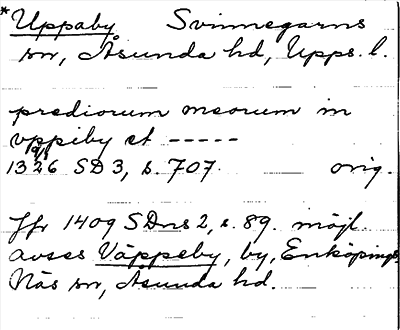 * Uppaby Svinnegarns
sn, Åsunda hd, Upps. l.
prediorum meorum in
vppiby et -----
19/8
1326 SD 3, s. 707. orig.
Jfr 1409 SDns 2, s. 89. möjl.
avses Väppeby, by, Enköpings-
Näs sn, Åsunda hd.